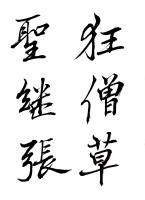 狂僧草
聖继張